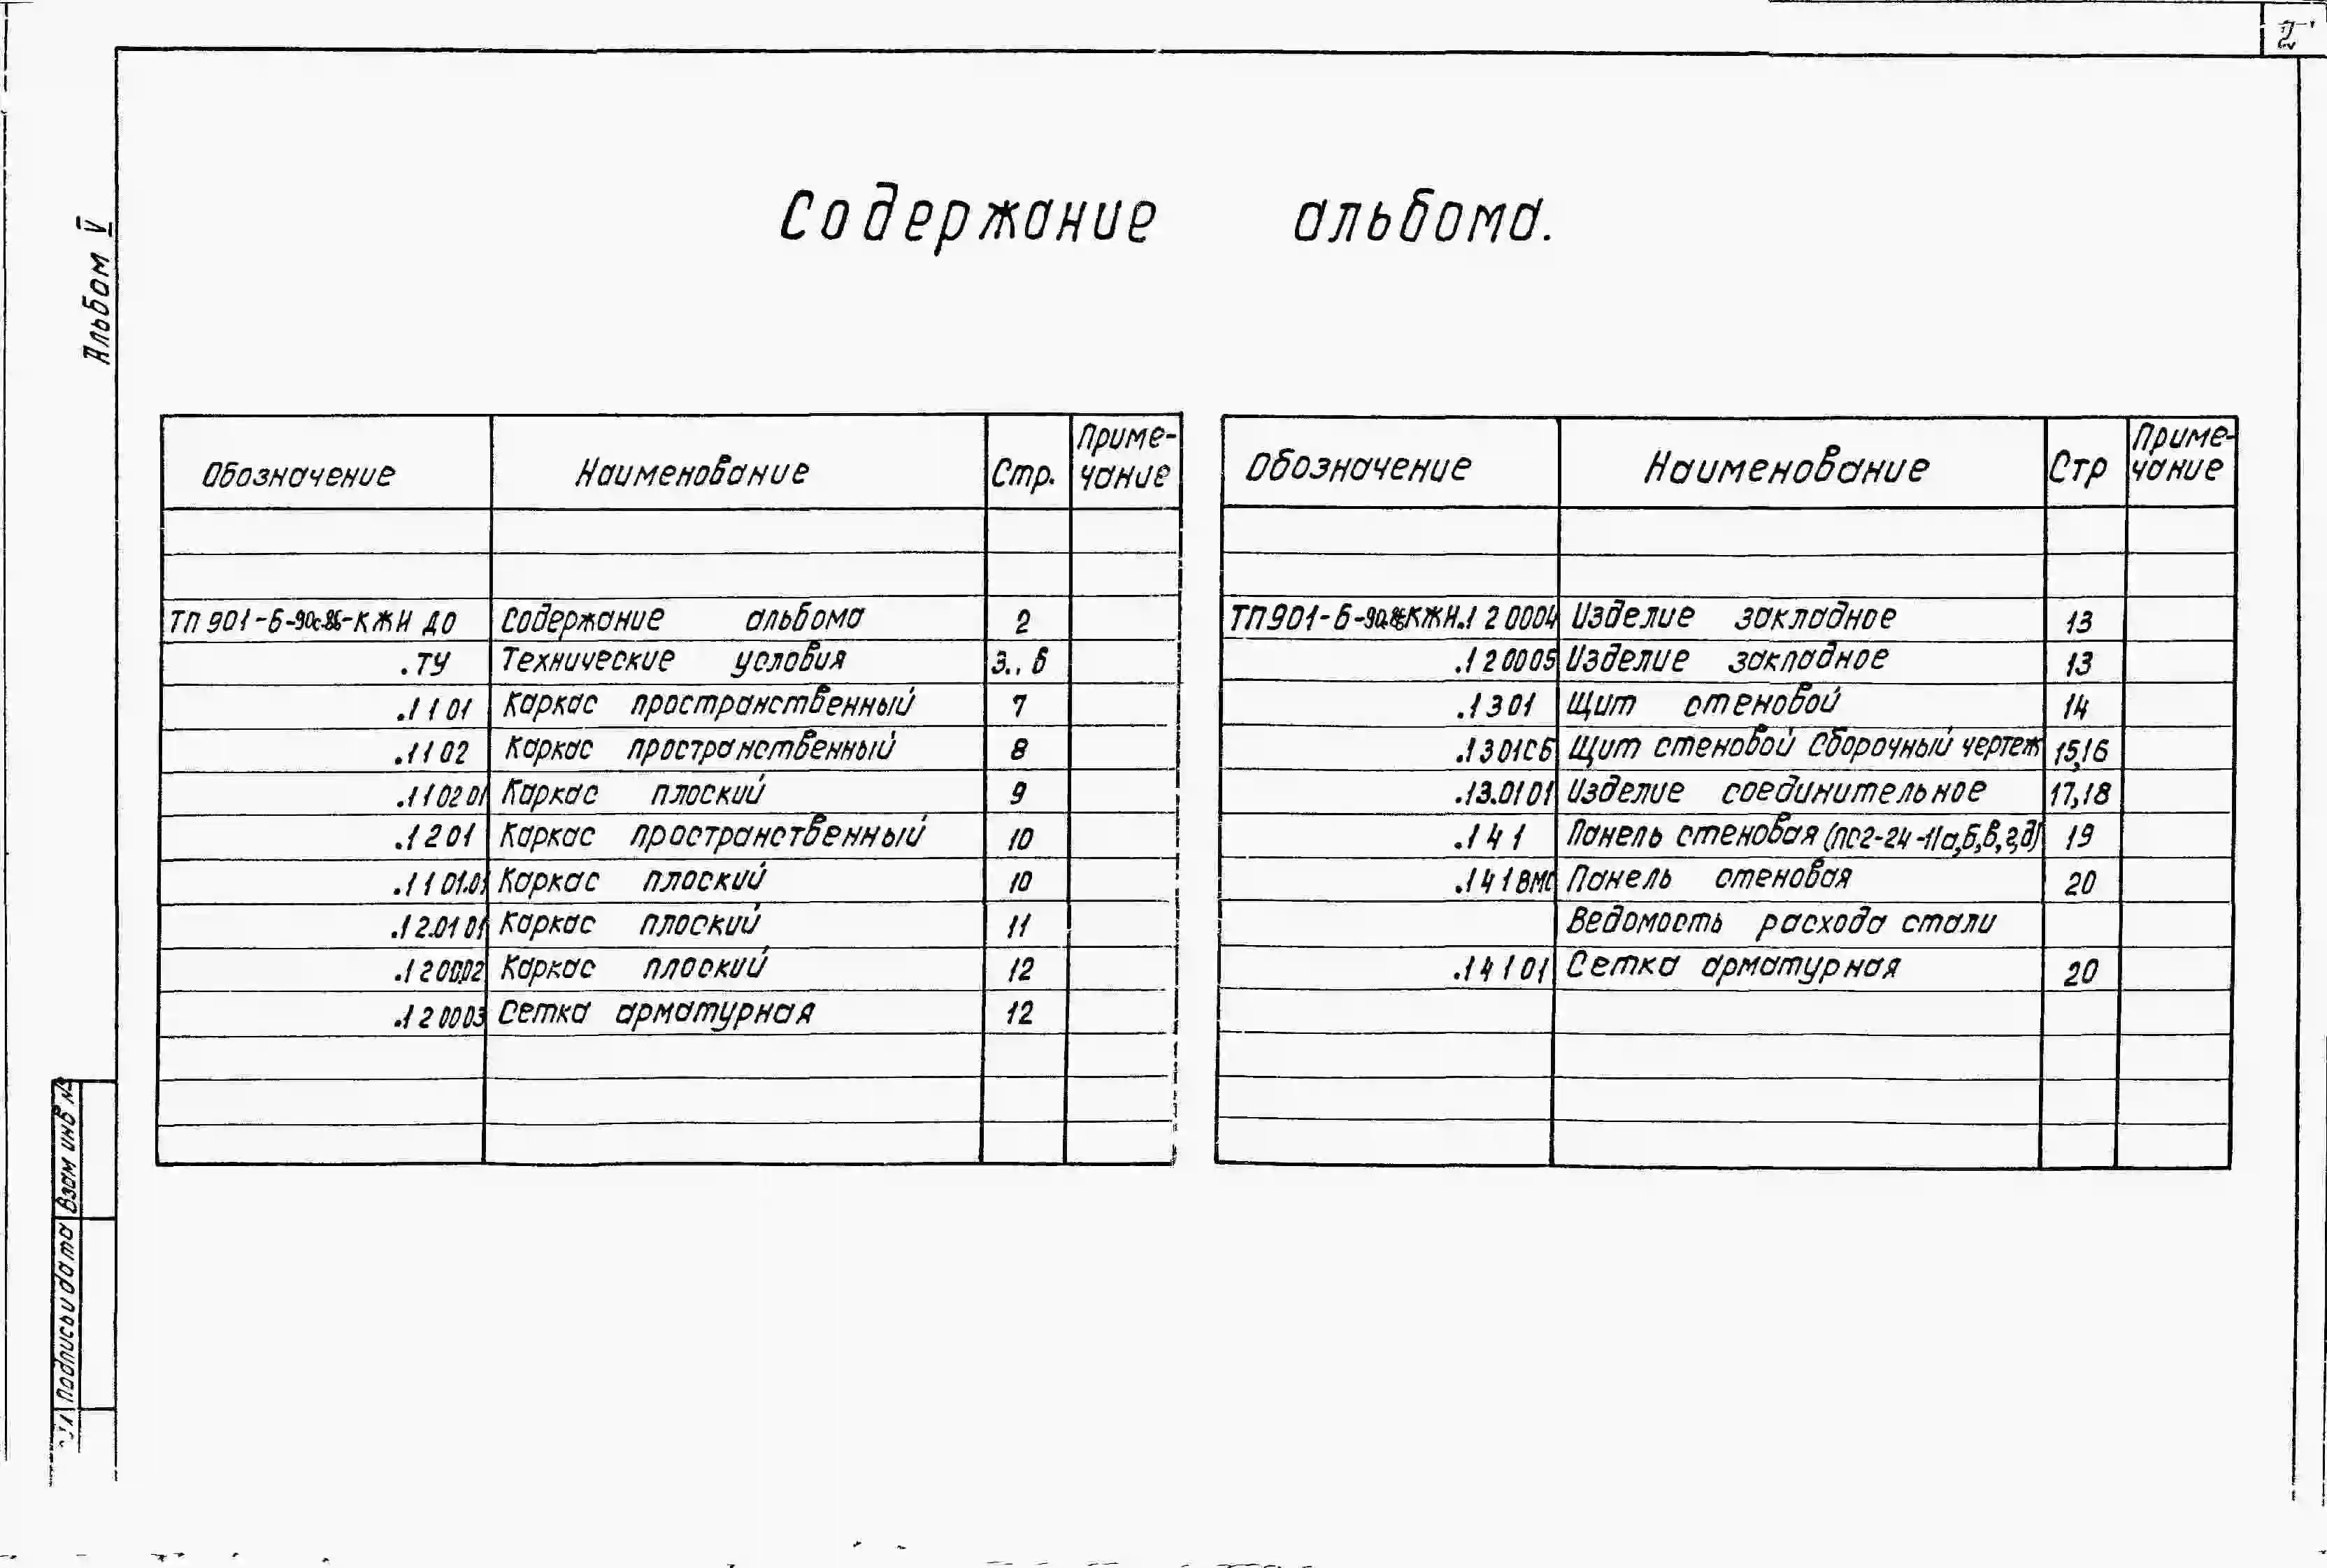 2
Альбом V
Содержание альбома.
Обозначение Наименование Стр. Приме-
чание
ТП 901-6-90с.86-КЖИ ДО Содержание альбома 2
.ТУ Технические условия 3..6
.1 1 01 Каркас пространственный 7
.1 1 02 Каркас пространственный 8
.1 1 02 01 Каркас плоский 9
.1 2 01 Каркас пространственный 10
.1 1 01.01 Каркас плоский 10
.1 2.01 01 Каркас плоский 11
.1 2 00.02 Каркас плоский 12
.1 2 00 03 Сетка арматурная 12
Обозначение Наименование Стр Приме-
чание
ТП 901-6-90с.86-КЖИ.1 2 0004 Изделие закладное 13
.1 2 0005 Изделие закладное 13
.1 3 01 Щит стеновой 14
.1 3 01СБ Щит стеновой Сборочный чертеж 15,16
.13.01 01 Изделие соединительное 17,18
.1 4 1 Панель стеновая (ПС2-24-11а,б,в,г,д) 19
.1 4 1ВМС Панель стеновая 20
Ведомость расхода стали
.1 4 1 01 Сетка арматурная 20
Взам инв №
Подпись и дата